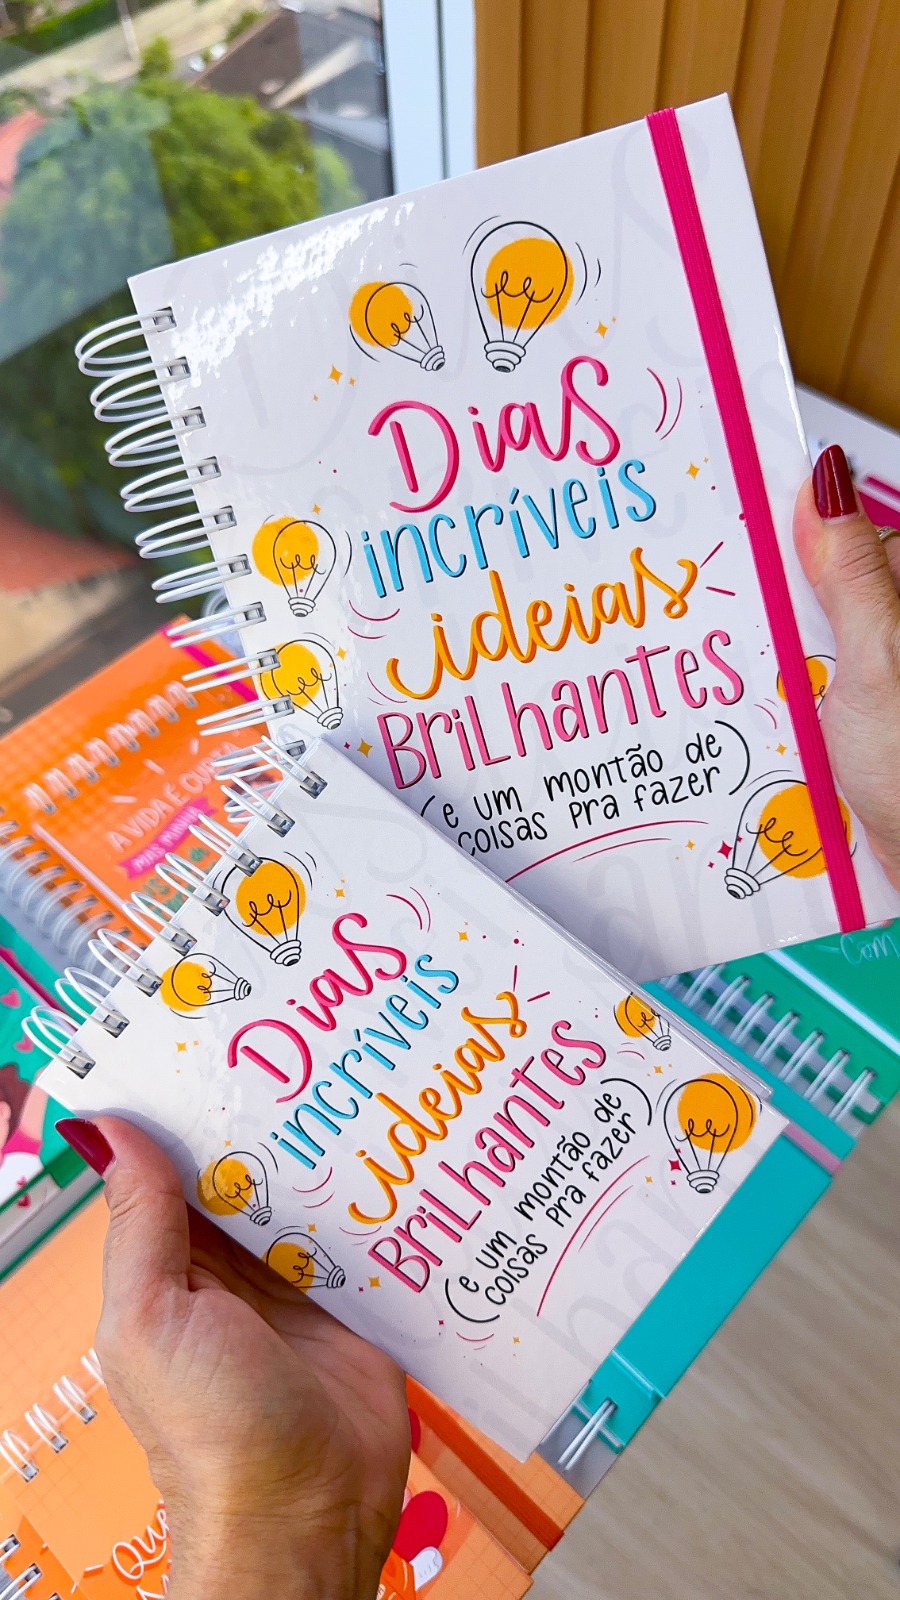 Dias
incríveis
ideias
Brilhantes
(e um montão de
coisas pra fazer)
Dias
incríveis
ideias
Brilhantes
(e um montão de
coisas pra fazer)
A VIDA É CURTA
MAS MINHA
Com
Que